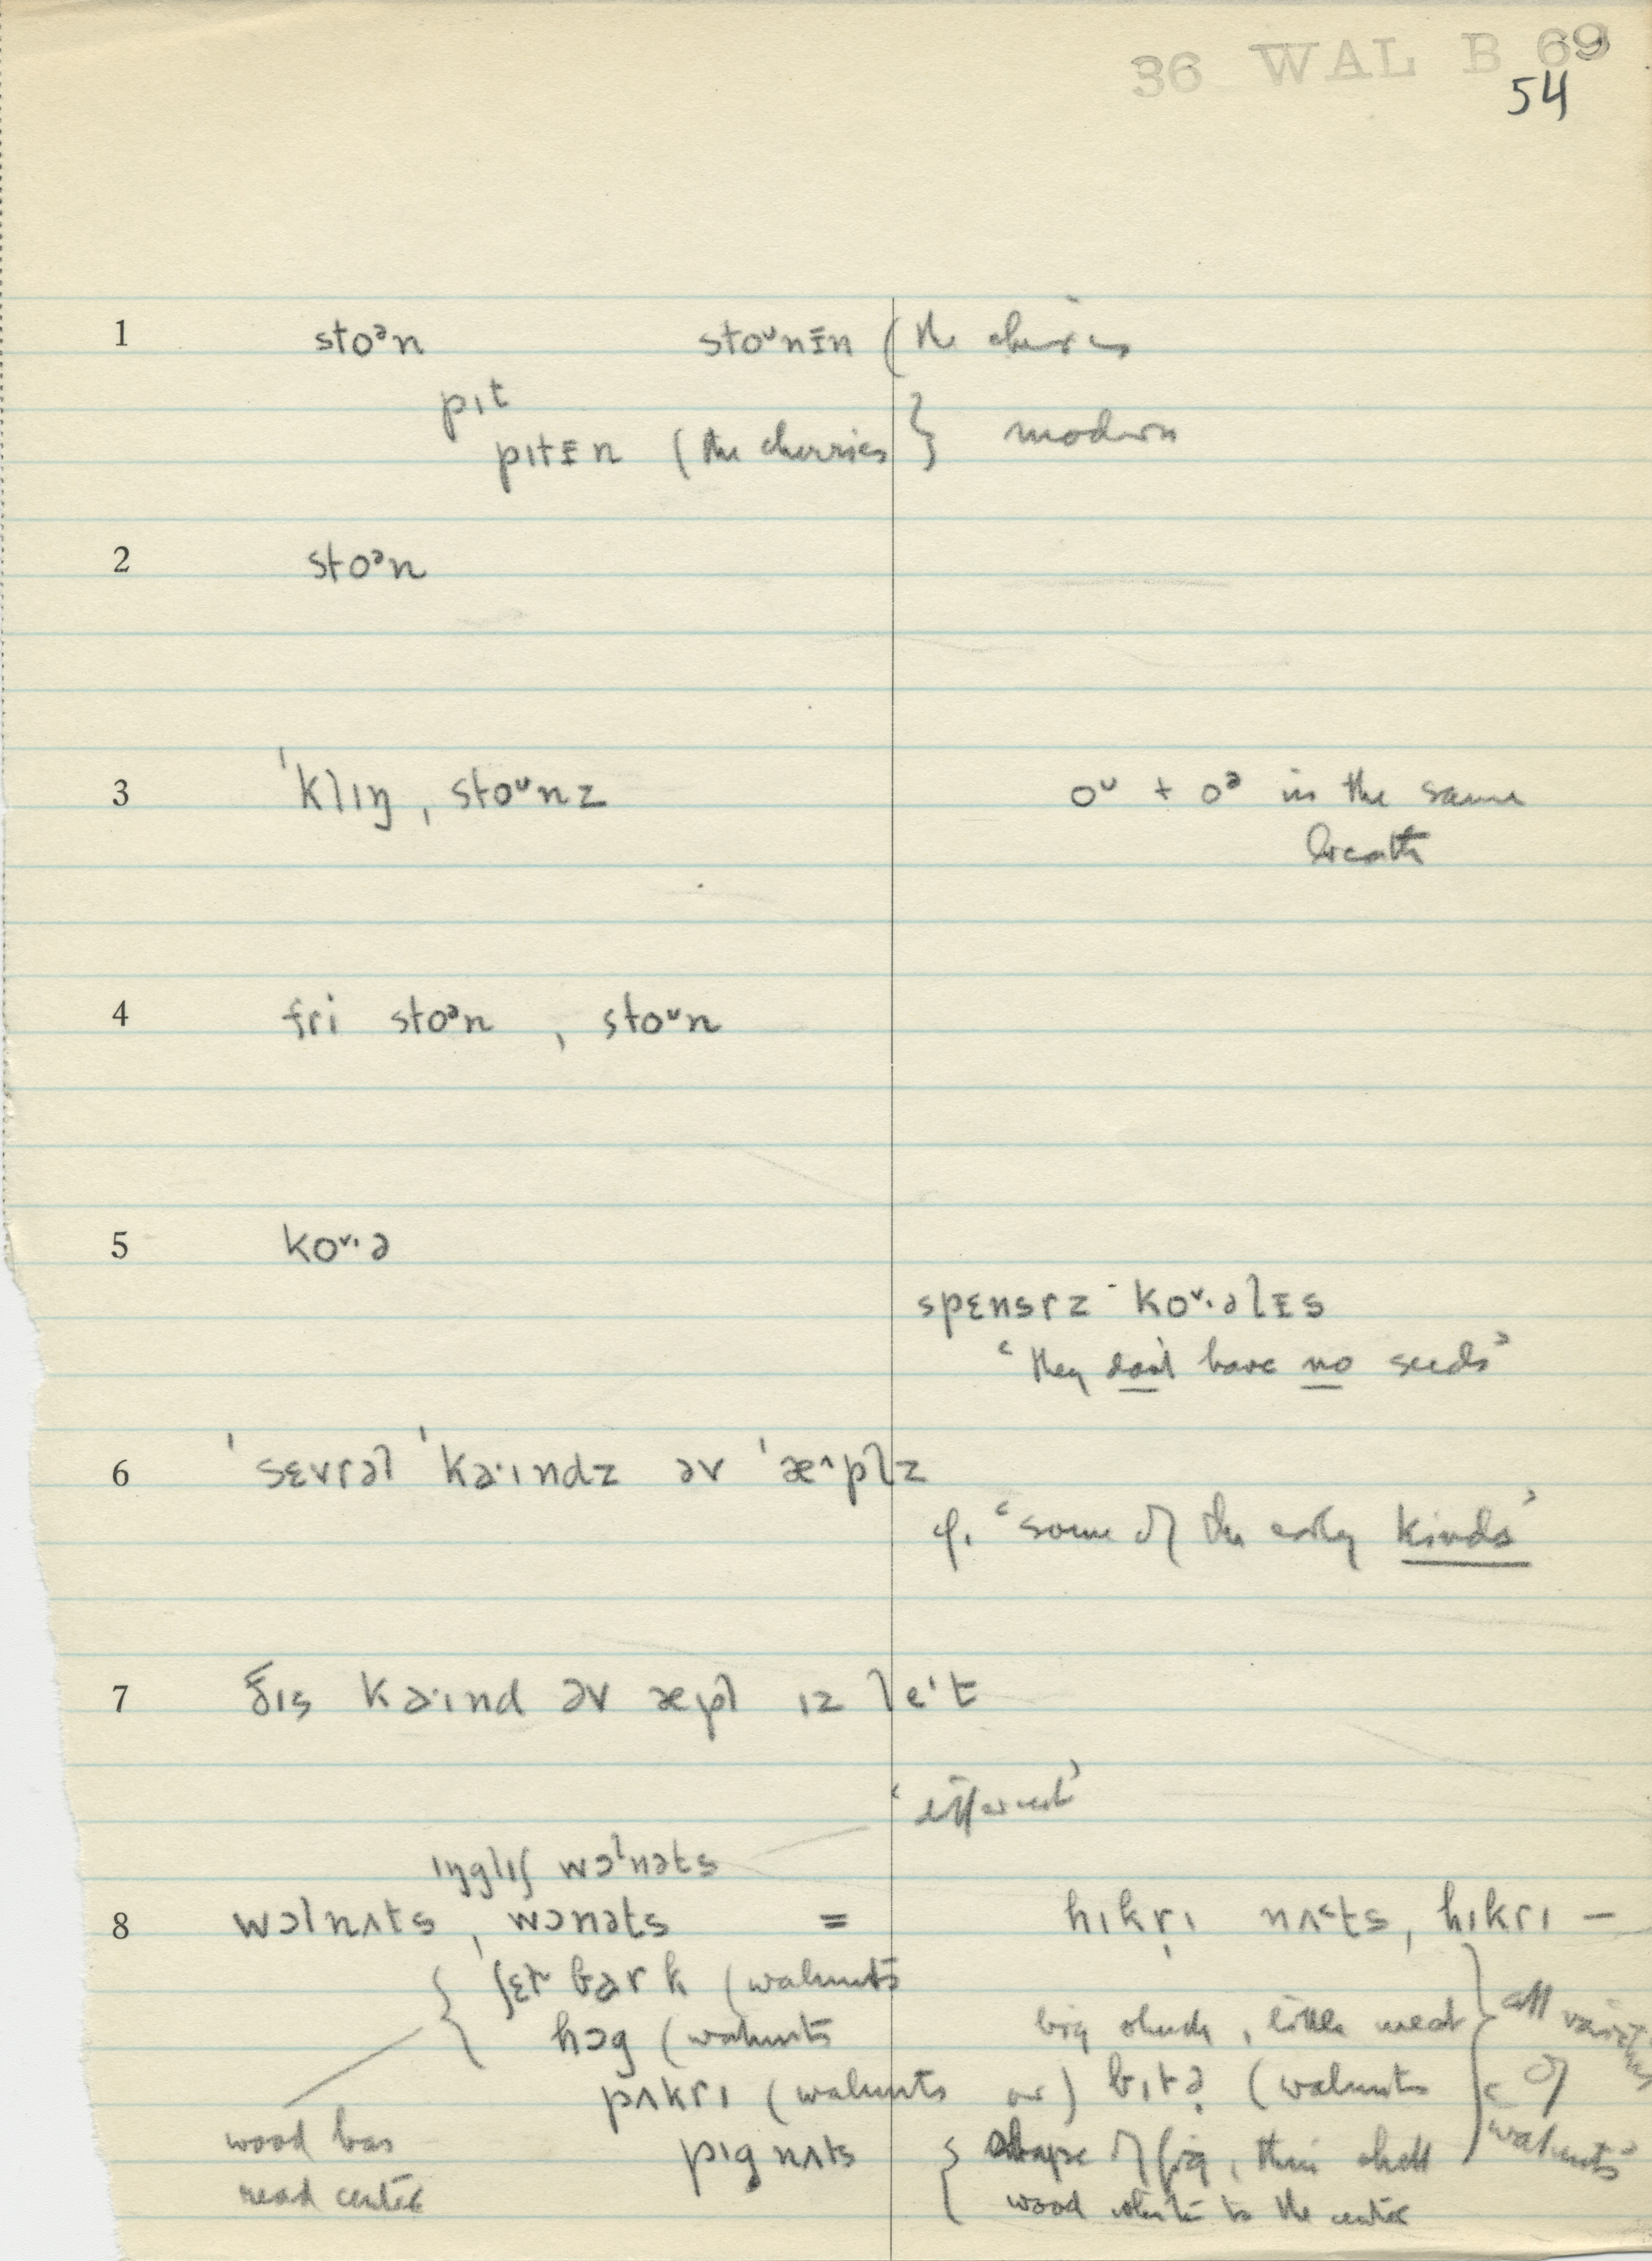 36 WAL B 69
54
1 stoᵊn stoᵘnɪ̵n (the cherries
pɪt
pɪtɪ̵n (the cherries } modern
2 stoᵊn
3 ˈklɪŋ, stoᵘnz oᵘ + oᵊ in the same
breath
4 fri stoᵊn, stoᵘn
5 koᵘ·ə
spɛnsrz koᵘ·əlɪ̵s
"they don't have no seeds"
6 ˈsɛvrəl ˈkə·ɪndz əv ˈæ^plz
cf. "some of the early kinds"
7 ðɪs kə·ɪnd əv æpl ɪz leˈt
'different'
ɪŋglɪʃ wɔˡnəts
8 wɔlnʌts, wɔnəts = hɪkrɪ nʌ˂ts, hɪkrɪ –
{ ʃɛt bark (walnuts
hɔg (walnuts big shuck, little meat } all varieties
pʌkrɪ (walnuts or) bɪtə (walnuts of
wood has pɪgnʌts { shape of fig, thin shell walnuts
read center wood white to the center